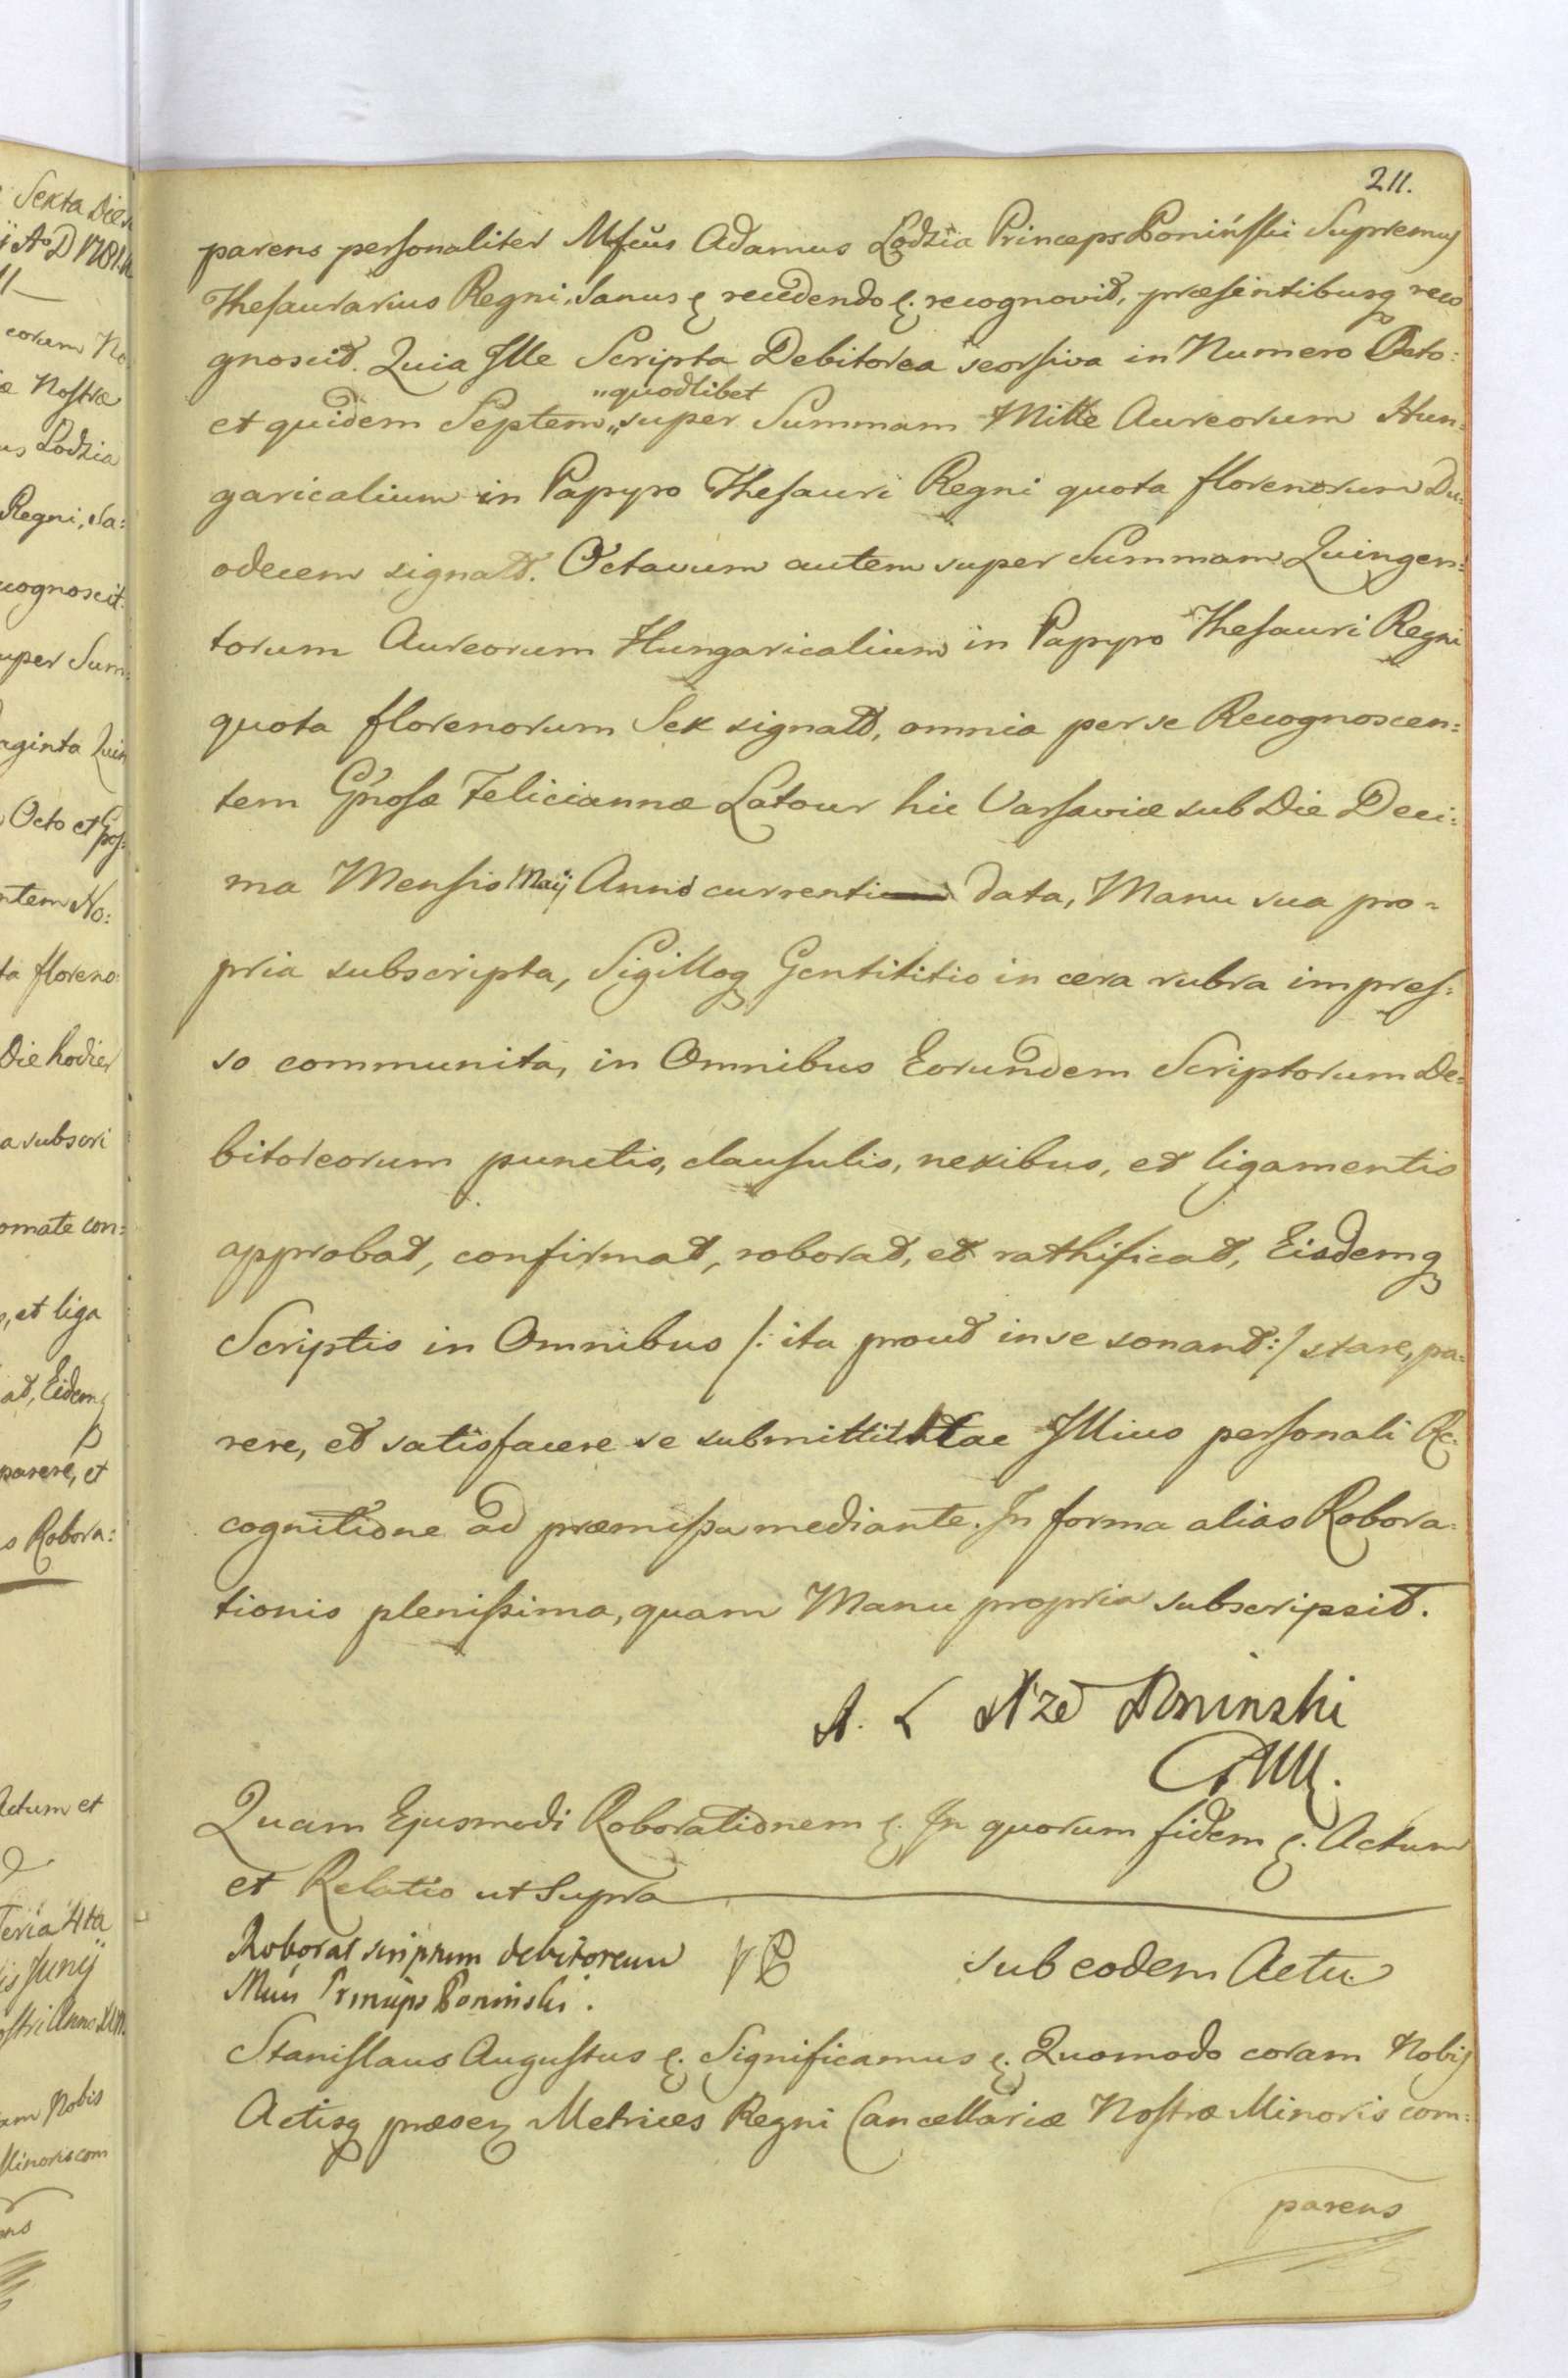 211.
parens personaliter Mfcus Adamus Lodzia Princeps Poniński Supremus
Thesaurarius Regni, Sanus &. recedendo &. recognovit, præsentibusq reco
gnoscit. Quia Ille Scripta Debitorea seorsiva in Numero Octo:
et quidem Septem „quodlibet super Summam Mille Aureorum Hun:
garicalium in Papyro Thesauri Regni quota florenorum Du:
odecem signatt. Octavum autem super Summam Quingen:
torum Aureorum Hungaricalium in Papyro Thesauri Regni
quota florenorum Sex signatt, omnia per se Recognoscen:
tem Gnosæ Feliciannæ Latour hic Varsaviæ sub Die Deci:
ma Mensis Maij Anno currenti data, Manu sua pro=
pria subscripta, Sigilloq Gentilitio in cera rubra impres:
so communita, in Omnibus Eorundem Scriptorum De:
bitoreorum punctis, clausulis, nexibus, et ligamentis
approbat, confirmat, roborat, et rathificat, Eisdemq
Scriptis in Omnibus /: ita prout in se sonant :/ stare, pa:
rere, et satisfacere se submittit Hac Illius personali Re:
cognitione ad præmissa mediante. In forma alias Robora:
tionis plenissima, quam Manu propria subscripsit.
A. Ł Xze Poninski
Quam Ejusmodi Roborationem &. In quorum fidem &. Actum
et Relatio ut Supra
Roborat scriptum debitoreum
sub eodem Actu
Princips Poninski.
Stanislaus Augustus &. Significamus &. Quomodo coram Nobis
Actisq præsen Metrices Regni Cancellariæ Nostræ Minoris com:
parens
Sexta Die
Ao D 1781
coram No
æ Nostræ
us Lodzia
Regni, Sa:
cognoscit
uper Sum:
aginta Quin
Octo et
ntem No:
ta floreno:
Die hodier
a subscri
omate con:
, et liga
at, Eidemq
parere, et
s Robora:
Actum et
Feria 4ta
is Junij
ostri Anno
am Nobis
Minoris com